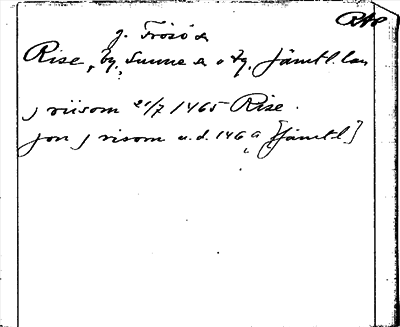 RAp
j. Frösö sn
Rise, by, Sunne sn o tg. Jämtl. län
j riisom 21/7 1465 Rise.
jon j risom u.d. 146 [Jämtl]